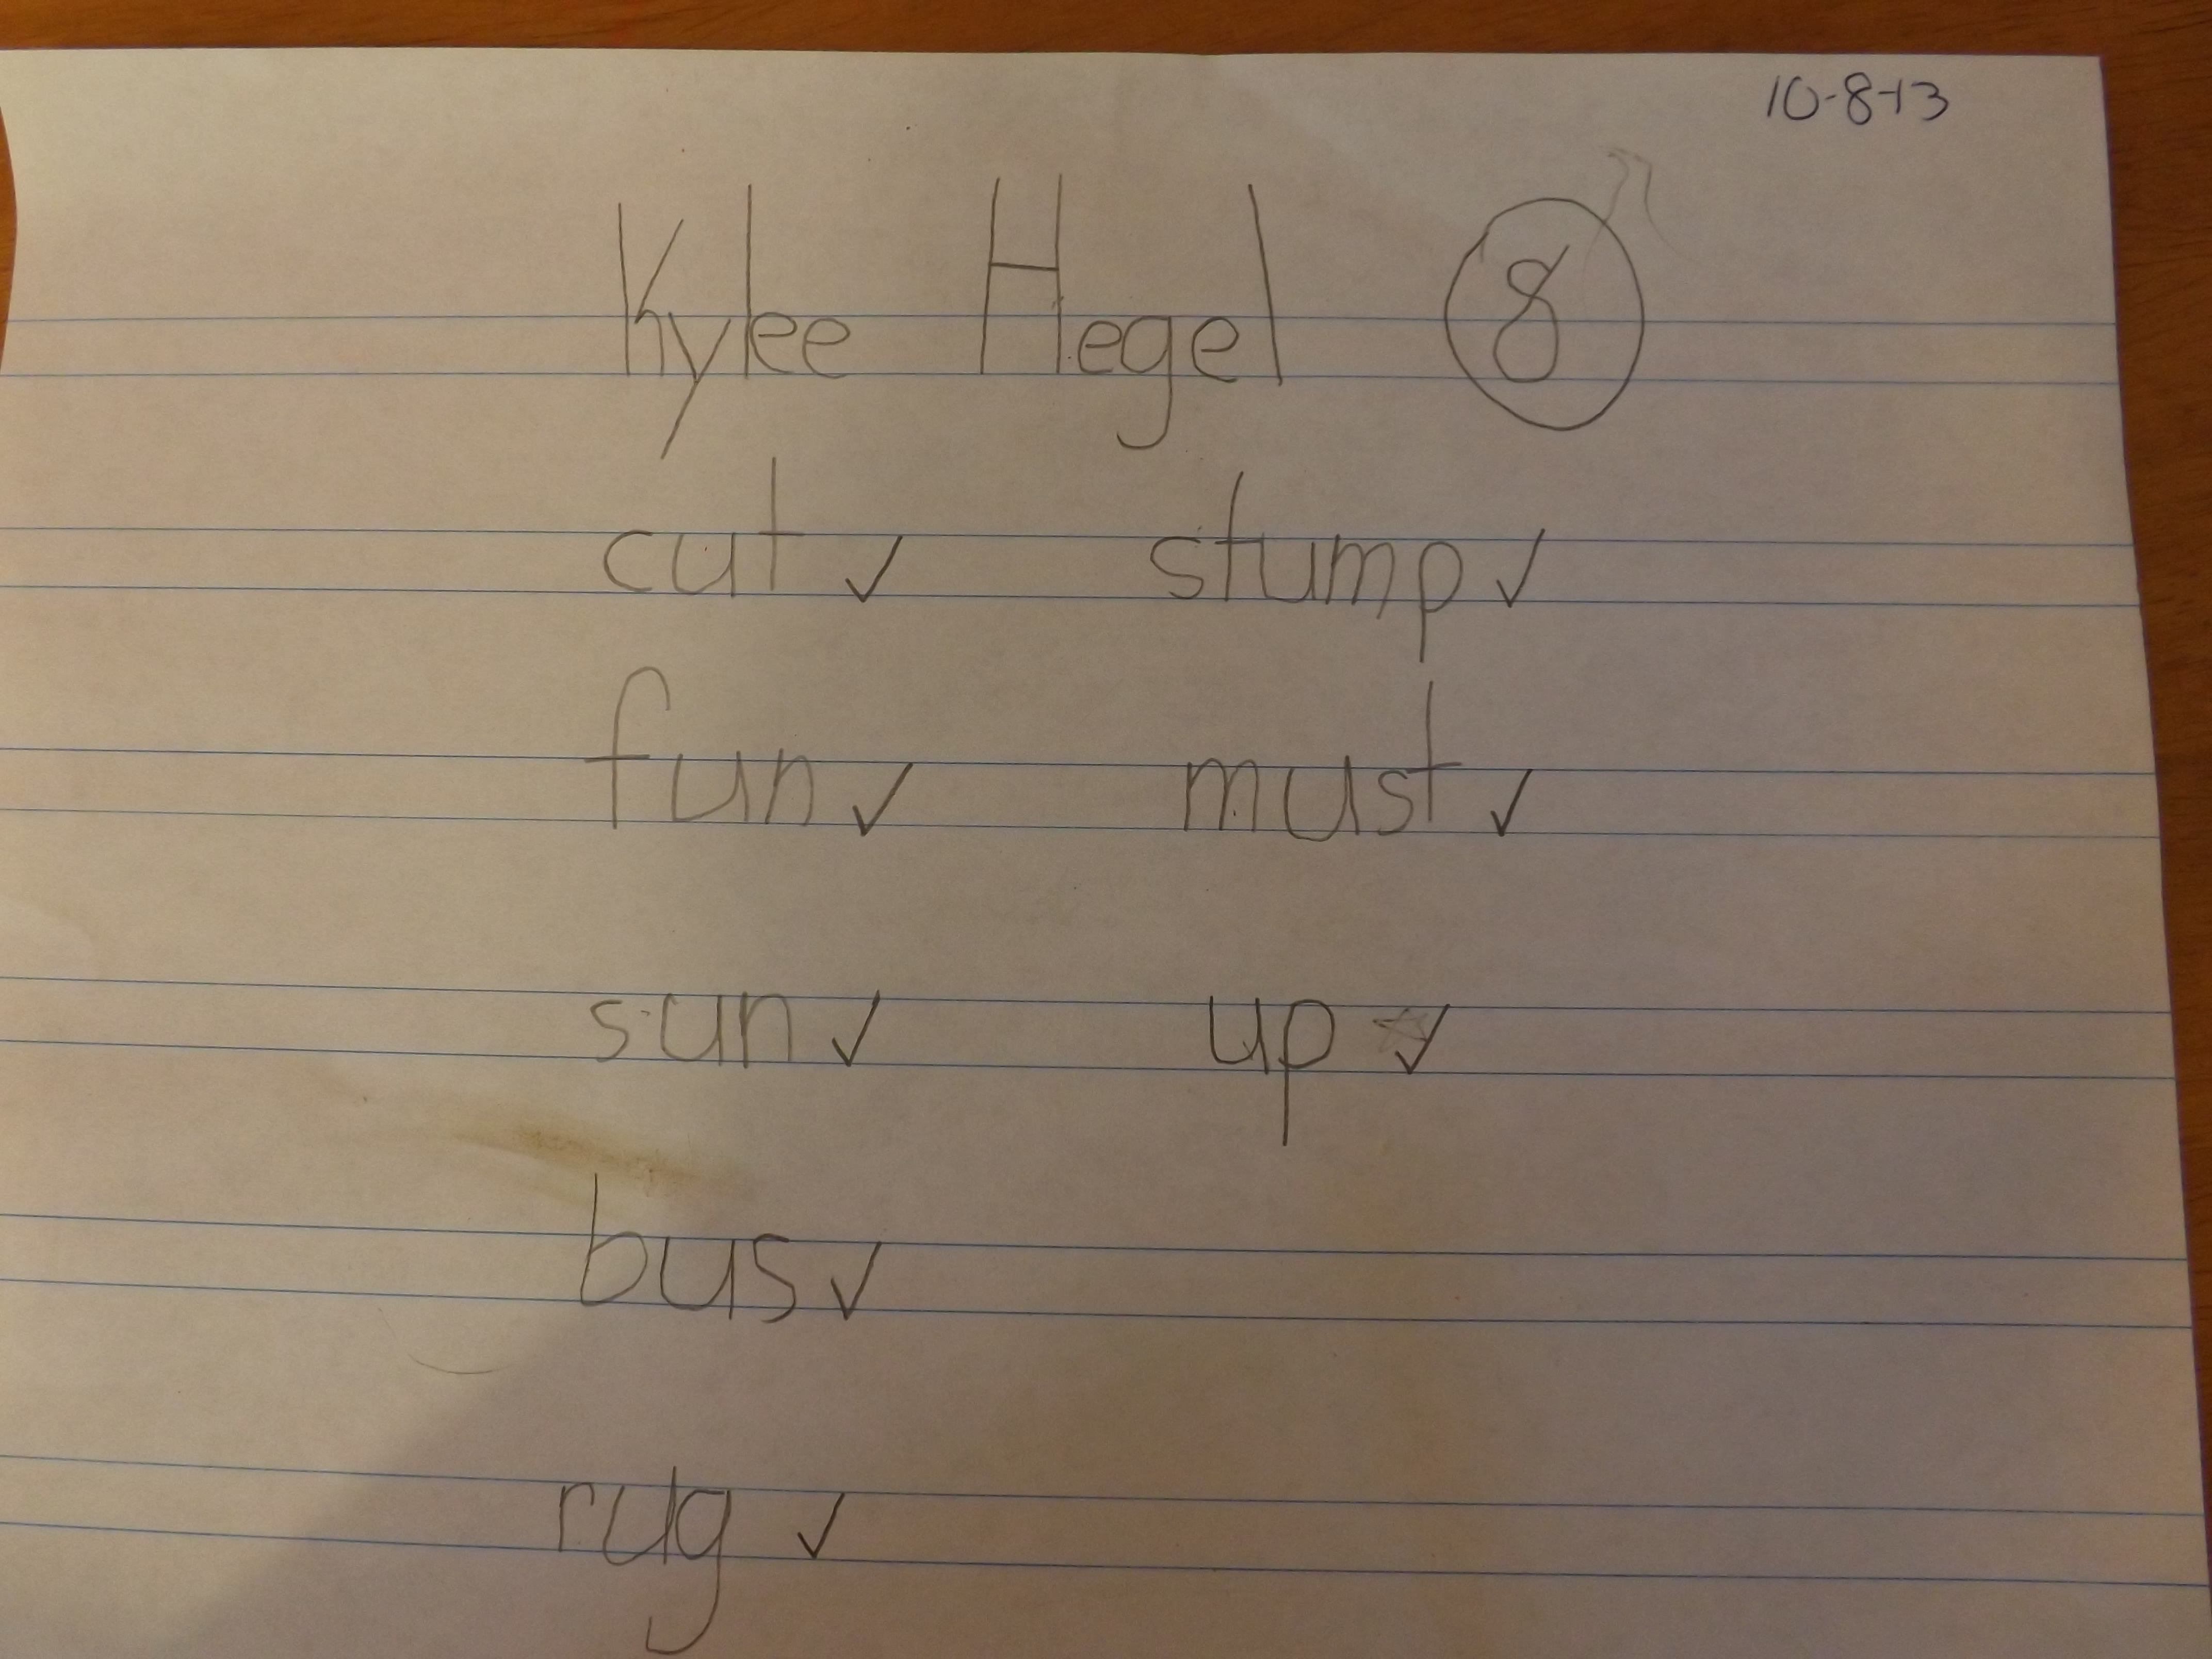 10-8-13
Kylee Hegel 8
cut ✓ stump ✓
fun ✓ must ✓
sun ✓ up ✓
bus ✓
rug ✓